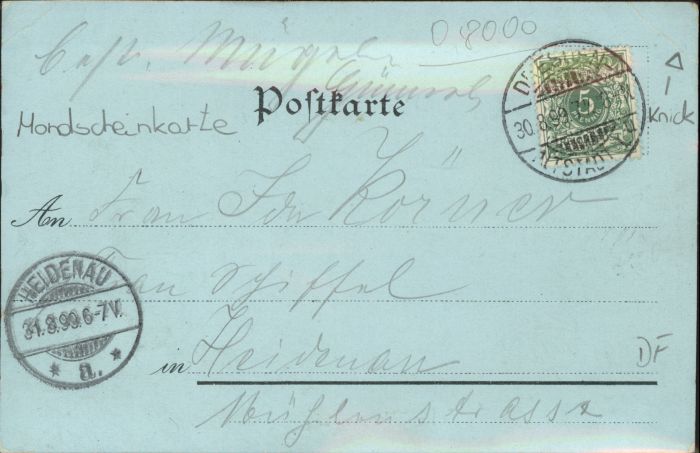 08000
Postkarte
Mondscheinkarte
Knick
DRESDEN
30.8.99.
ALTSTADT
5
An Frau Ida Körner
Frau Schiffel
HEIDENAU
31.8.99.6-7V.
* a. *
in Heidenau
DF
Mühlenstrasse